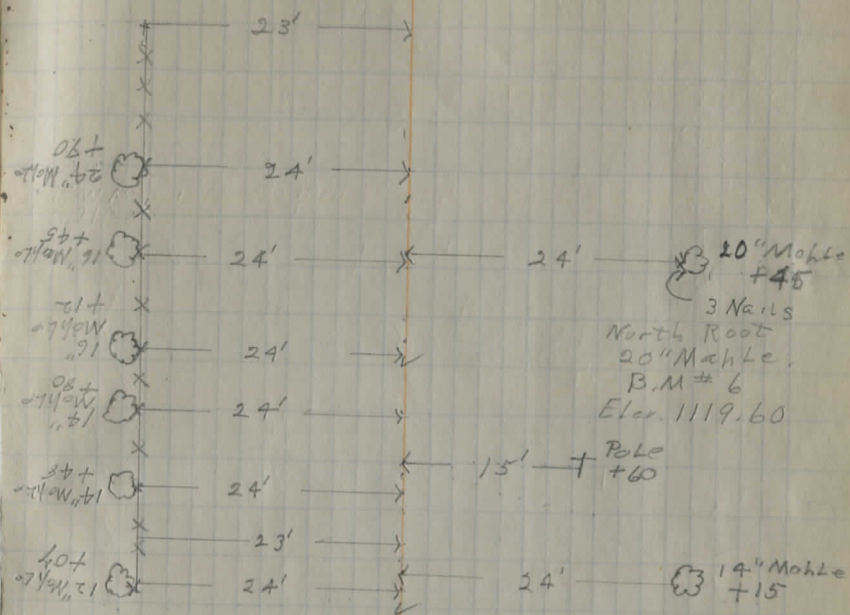 23'
24"Maple
+90
24'
16"Maple
+45
24'
24'
20"Maple
+45
3 Nails
North Root
20"Maple.
B.M # 6
Elev. 1119.60
16"
Maple
+12
24'
14"
Maple
+80
24'
Pole
+60
15'
14"Maple
+48
24'
23'
12"Maple
+07
24'
24'
14"Maple
+15